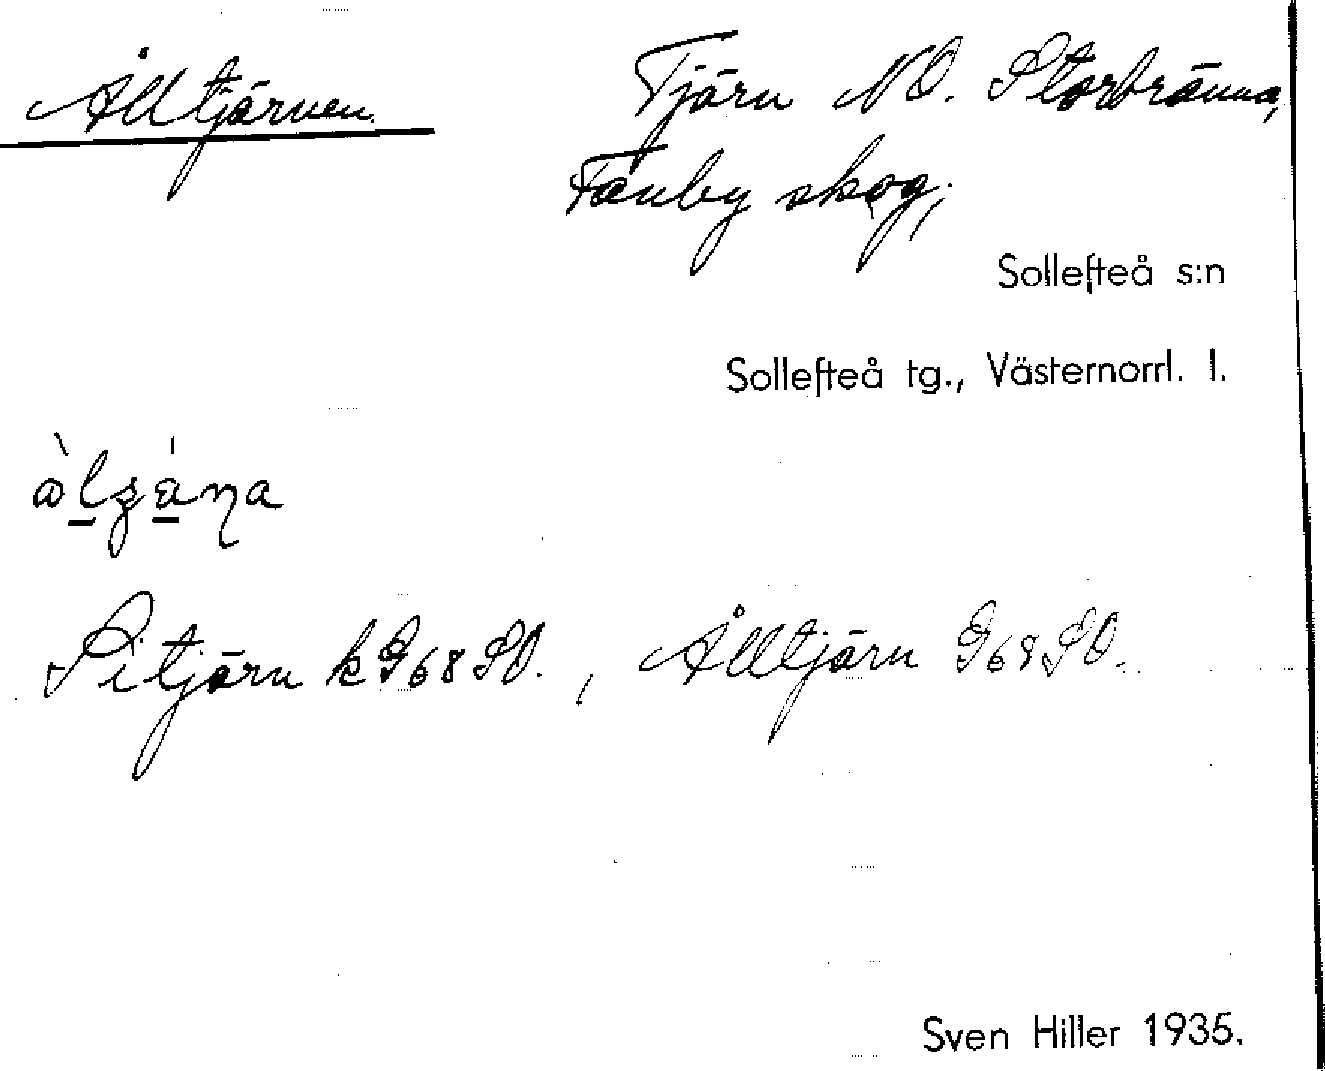 Ålltjärnen. Tjärn NO. Storbränna,
Fanby skog,
Sollefteå s:n
Sollefteå tg., Västernorrl. l.
Pitjärn k G68 SO., Ålltjärn G68 SO.
Sven Hiller 1935.